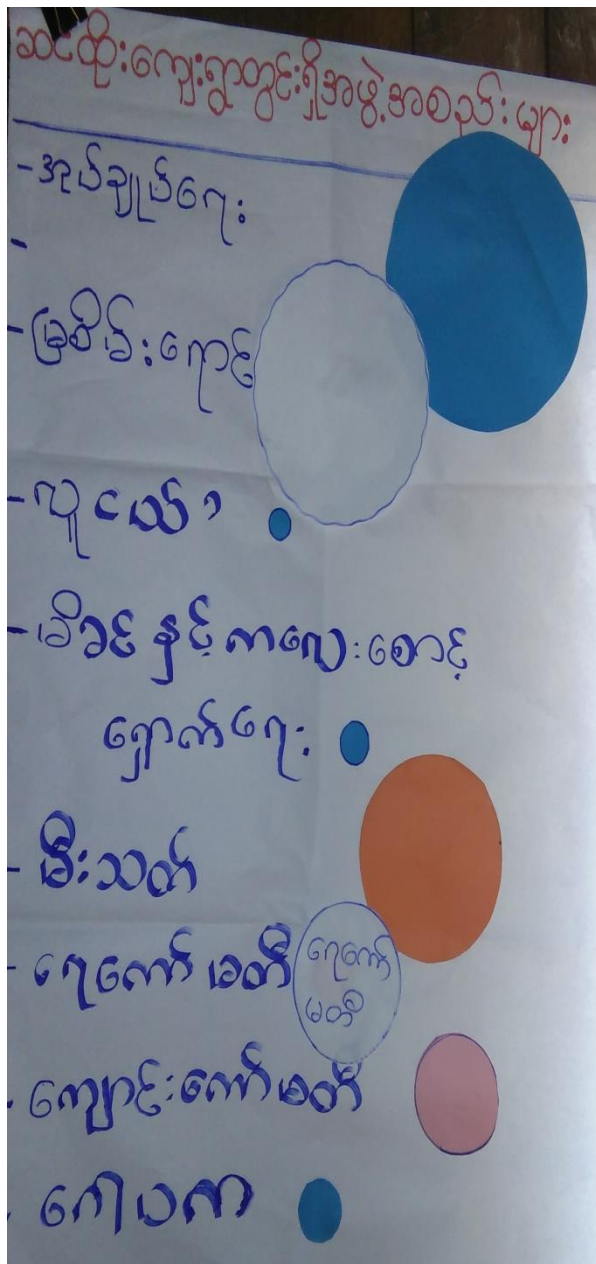 ဆင်ထိုးကျေးရွာတွင်ရှိအဖွဲ့အစည်းများ
-အုပ်ချုပ်ရေး
-
-မြစိမ်းရောင်
-လူငယ်
-မိခင်နှင့်ကလေးစောင့်
ရှောက်ရေး
-မီးသတ်
-ရေကော်မတီ
ရေကော်
မတီ
-ကျောင်းကော်မတီ
-ဂေါပက